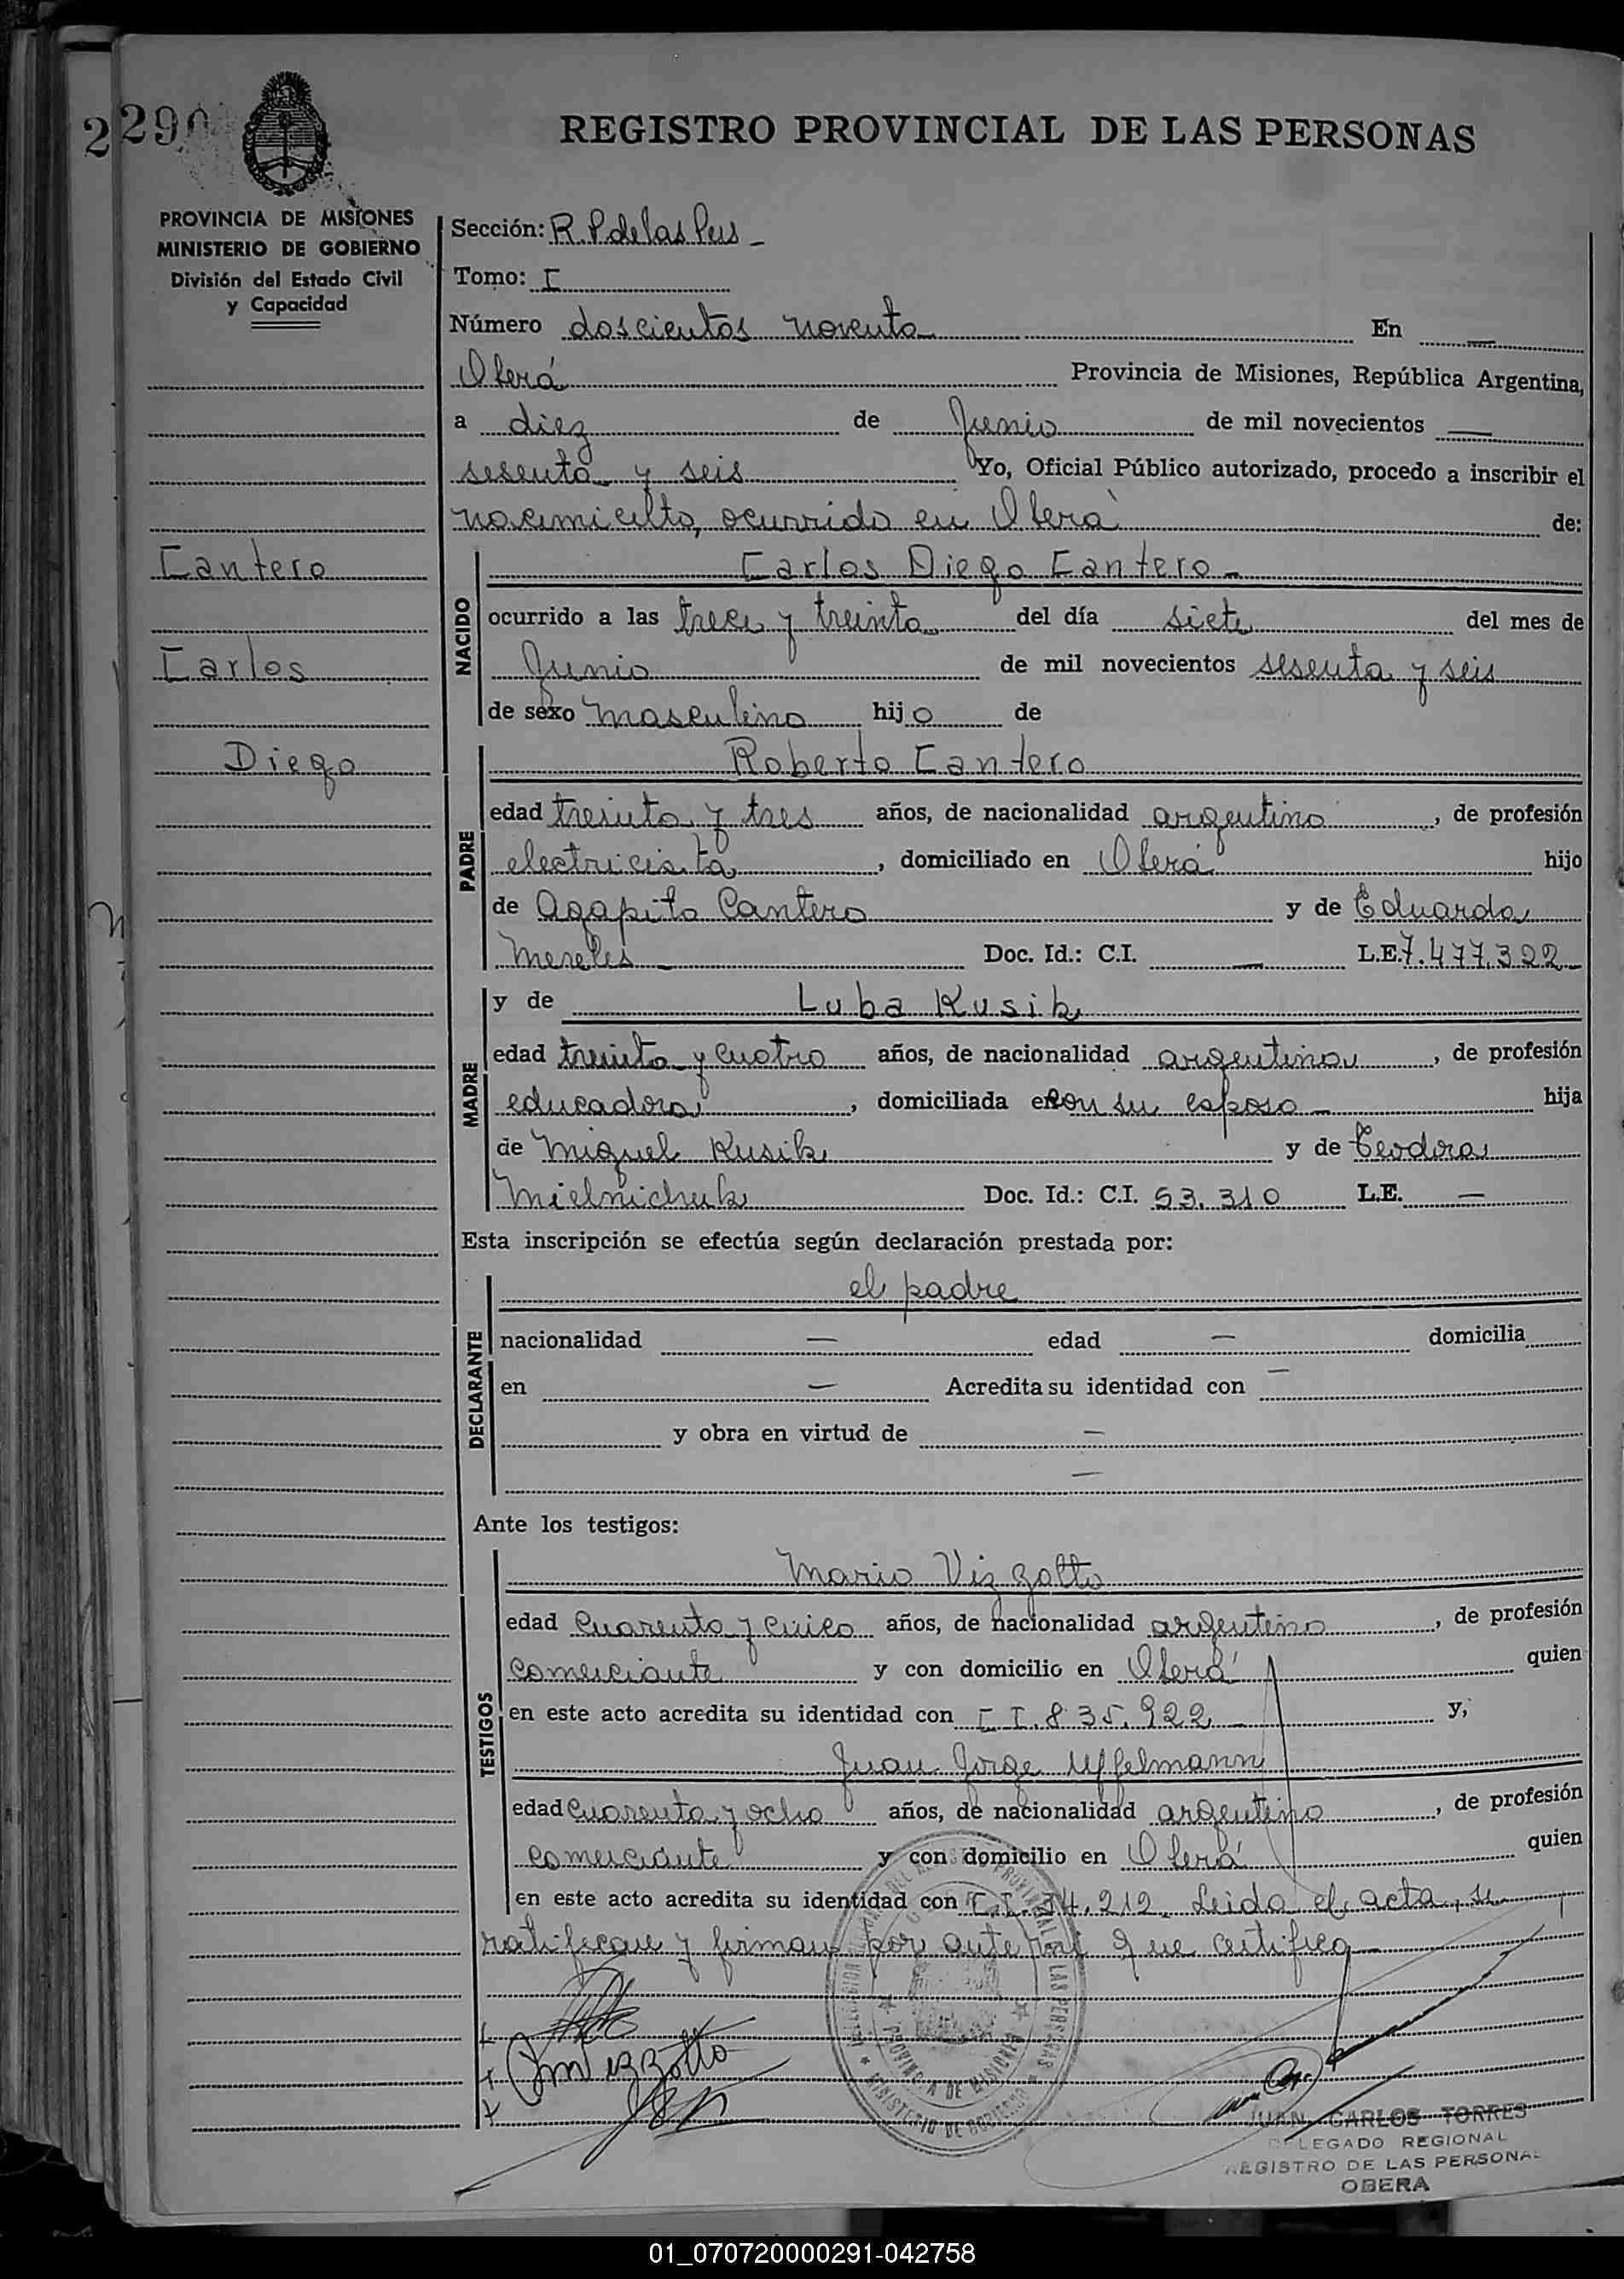 2 290
REGISTRO PROVINCIAL DE LAS PERSONAS
PROVINCIA DE MISIONES
MINISTERIO DE GOBIERNO
División del Estado Civil
y Capacidad
Cantero
Carlos
Diego
Sección: R. P de las Pers -
Tomo: I
Número doscientos noventa En —
Oberá Provincia de Misiones, República Argentina,
a diez de Junio de mil novecientos —
sesenta y seis Yo, Oficial Público autorizado, procedo a inscribir el
nacimiento, ocurrido en Oberá de:
NACIDO
Carlos Diego Cantero -
ocurrido a las trece y treinta del día siete del mes de
Junio de mil novecientos sesenta y seis
de sexo masculino hijo de
PADRE
Roberto Cantero
edad treinta y tres años, de nacionalidad argentino, de profesión
electricista, domiciliado en Oberá hijo
de Agapito Cantero y de Eduarda
Mereles - Doc. Id.: C.I. — L.E. 7.477.322 -
MADRE
y de Luba Kusik
edad treinta y cuatro años, de nacionalidad argentina, de profesión
educadora, domiciliada en con su esposo - hija
de Miguel Kusik y de Teodora
Mielnichuk Doc. Id.: C.I. 53.310 L.E. —
Esta inscripción se efectúa según declaración prestada por:
DECLARANTE
el padre
nacionalidad — edad — domicilia
en — Acredita su identidad con —
y obra en virtud de —
—
Ante los testigos:
TESTIGOS
Mario Vizzotto
edad cuarenta y cinco años, de nacionalidad argentino, de profesión
comerciante y con domicilio en Oberá quien
en este acto acredita su identidad con C I. 835.922 - y,
Juan Jorge Uffelmann
edad cuarenta y ocho años, de nacionalidad argentino, de profesión
comerciante y con domicilio en Oberá quien
en este acto acredita su identidad con C.I. 34.212. Leida el acta, se
ratifican y firman por ante mi que certifico
Mvizzotto
PROVINCIA DE MISIONES
MINISTERIO DE GOBIERNO
JUAN CARLOS TORRES
DELEGADO REGIONAL
REGISTRO DE LAS PERSONAS
OBERA
01_070720000291-042758